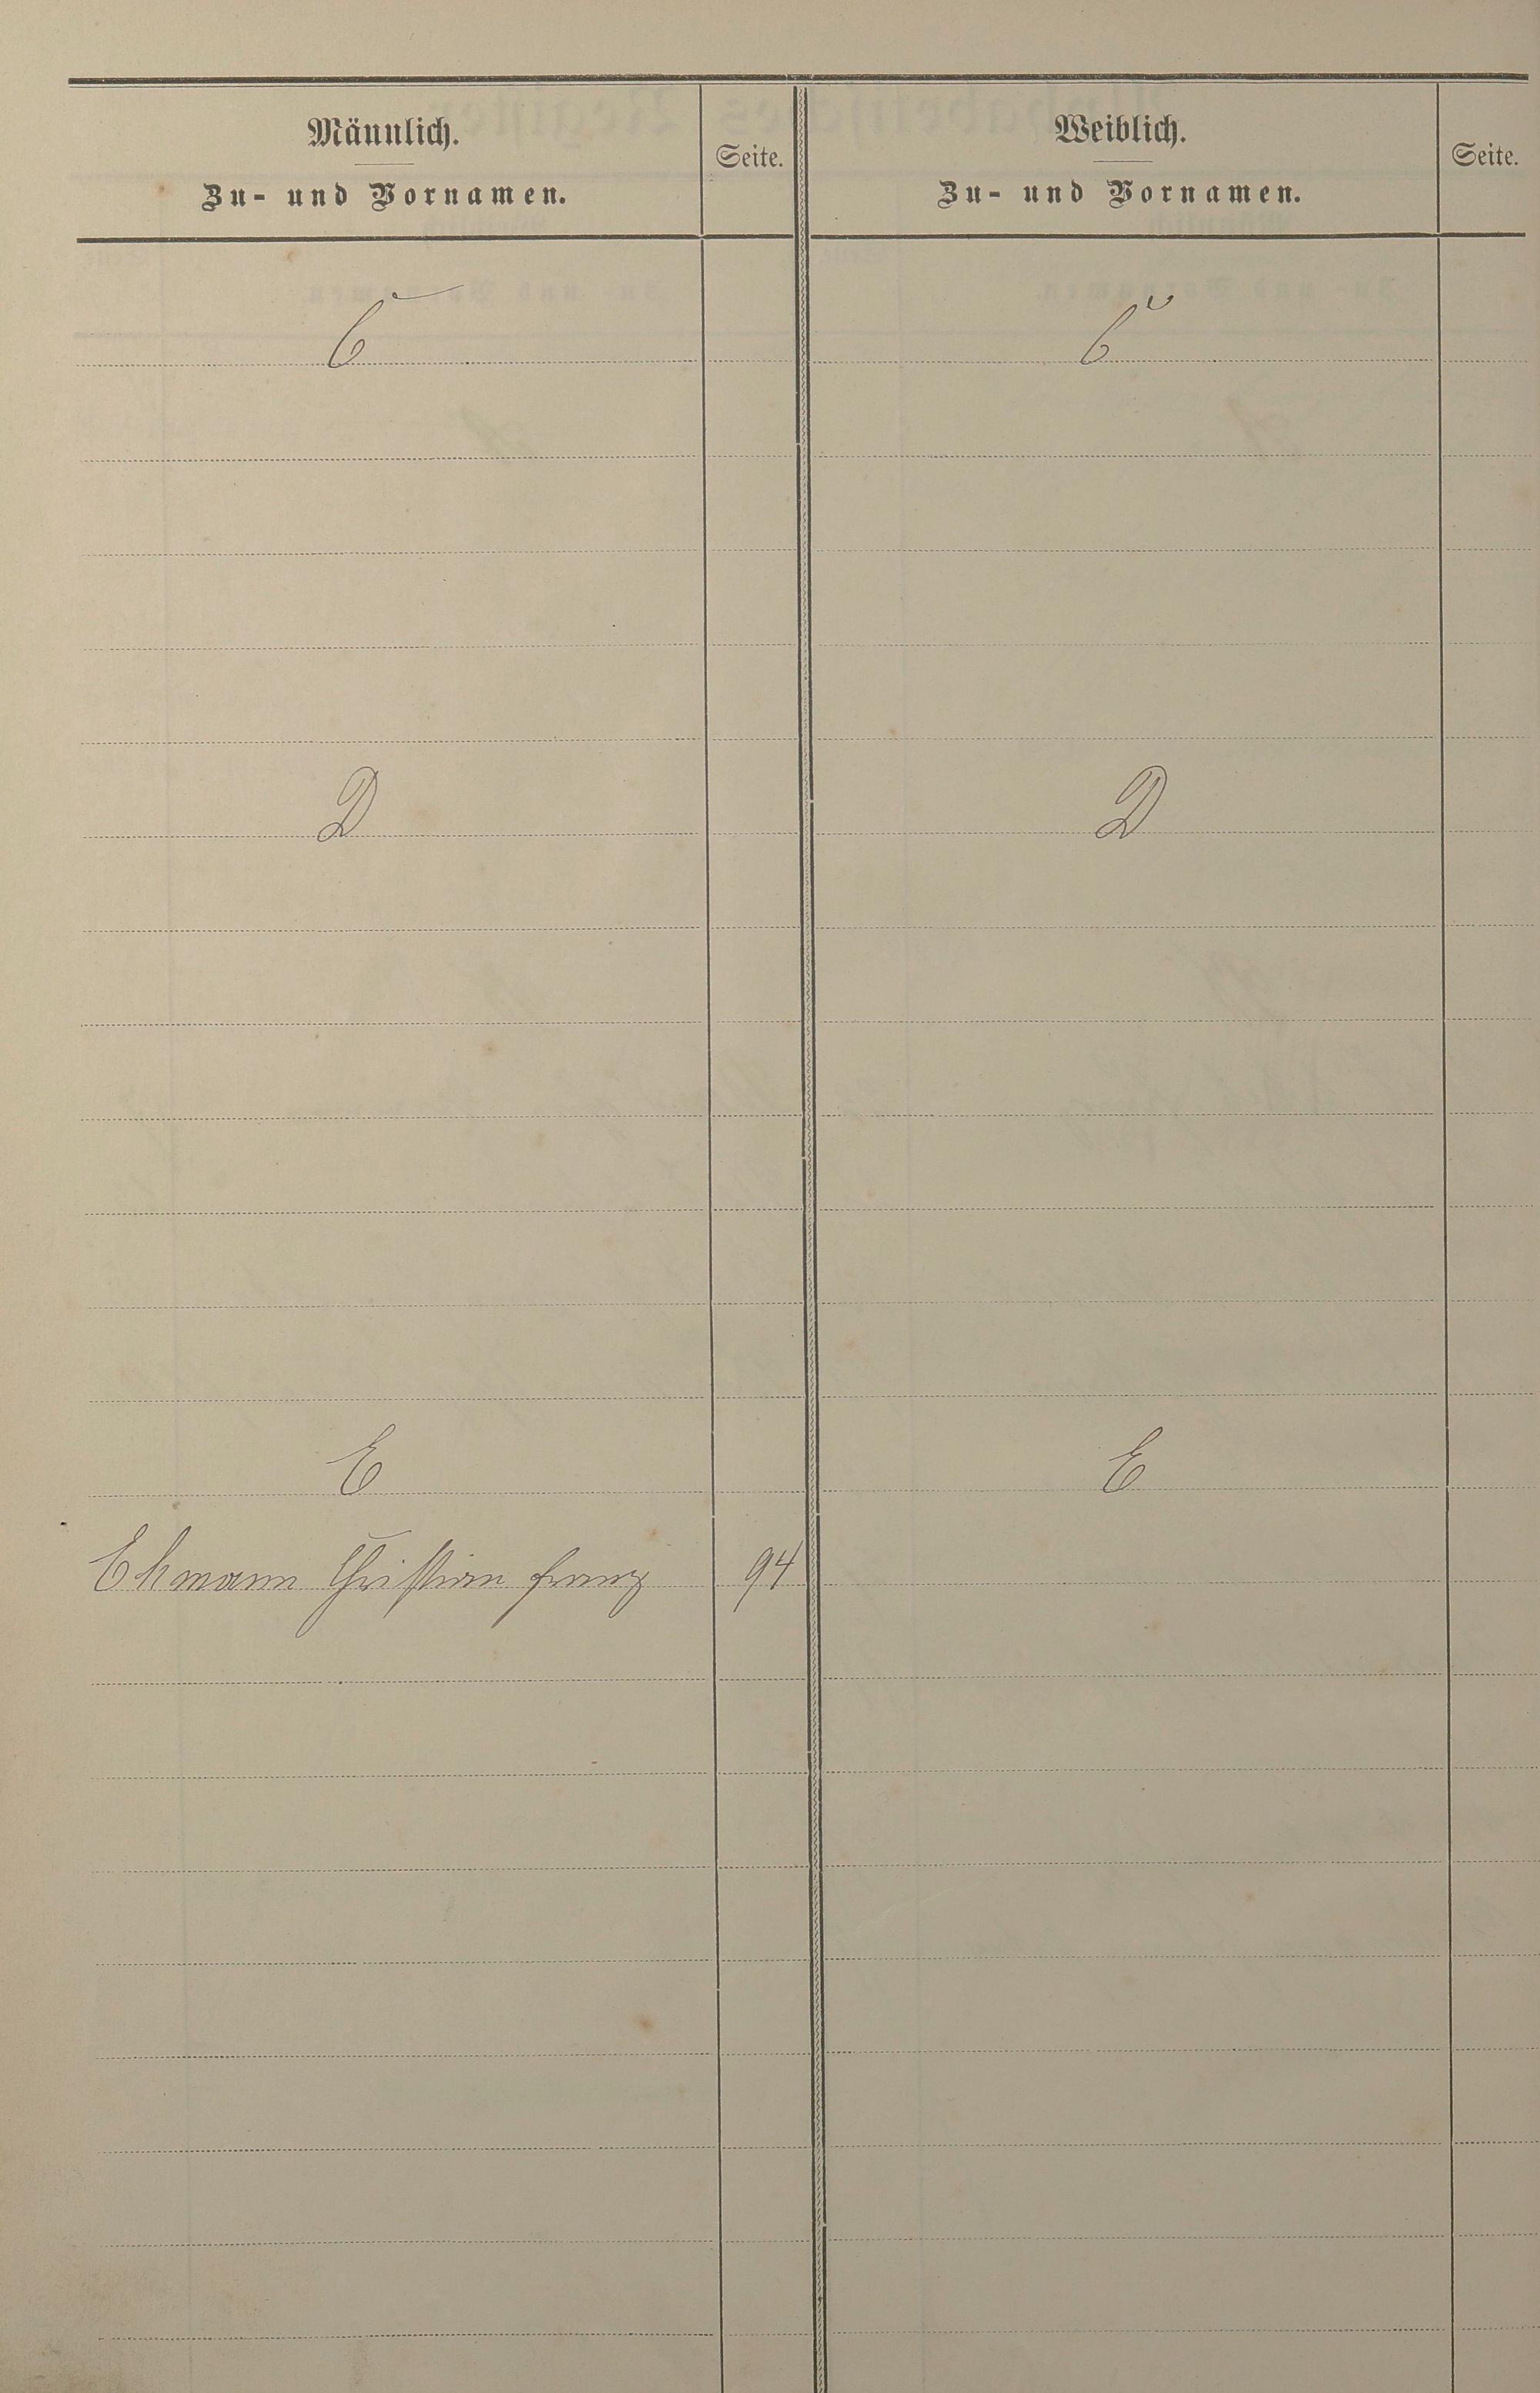 Männlich.
Zu- und Vornamen.
Seite.
Weiblich.
Zu- und Vornamen.
Seite.
C
C
D
D
E
E
Ehmann Christian Franz
94